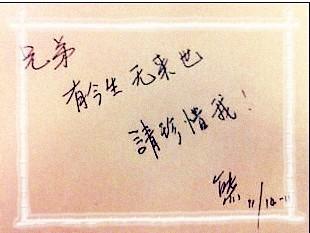 兄弟
有今生 无来世
請珍惜我！
11/14-11